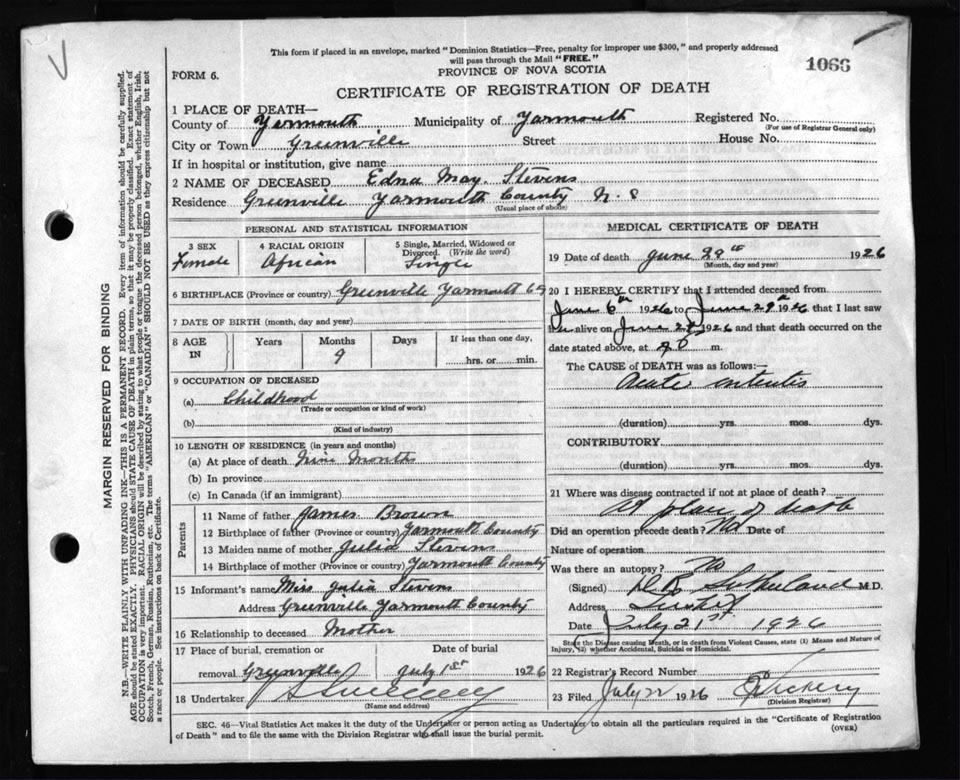 This form if placed in an envelope, marked "Dominion Statistics—Free, penalty for improper use $300," and properly addressed
will pass through the Mail "FREE."
1066
FORM 6.
PROVINCE OF NOVA SCOTIA
CERTIFICATE OF REGISTRATION OF DEATH
MARGIN RESERVED FOR BINDING
N.B.—WRITE PLAINLY WITH UNFADING INK—THIS IS A PERMANENT RECORD. Every item of information should be carefully supplied.
AGE should be stated EXACTLY. PHYSICIANS should STATE CAUSE OF DEATH in plain terms, so that it may be properly classified. Exact statement of
OCCUPATION is very important. RACIAL ORIGIN will be described by stating to what people or tongue the deceased person belonged, whether English, Irish,
Scotch, French, German, Russian, Ruthenian, etc. The terms "AMERICAN" or "CANADIAN" SHOULD NOT BE USED as they express citizenship but not
a race or people. See instructions on back of Certificate.
1 PLACE OF DEATH—
County of Yarmouth Municipality of Yarmouth Registered No.
(For use of Registrar General only)
City or Town Greenville Street House No.
If in hospital or institution, give name
2 NAME OF DECEASED Edna May Stevens
Residence Greenville Yarmouth County N. S
(Usual place of abode)
PERSONAL AND STATISTICAL INFORMATION
3 SEX 4 RACIAL ORIGIN 5 Single, Married, Widowed or
Divorced. (Write the word)
Female African Single
6 BIRTHPLACE (Province or country) Greenville Yarmouth Co
7 DATE OF BIRTH (month, day and year)
8 AGE IN Years Months Days If less than one day,
9 hrs. or min.
9 OCCUPATION OF DECEASED
(a) Childhood
(Trade or occupation or kind of work)
(b)
(Kind of industry)
10 LENGTH OF RESIDENCE (in years and months)
(a) At place of death Nine Month
(b) In province
(c) In Canada (if an immigrant)
Parents
11 Name of father James Brown
12 Birthplace of father (Province or country) Yarmouth County
13 Maiden name of mother Julia Stevens
14 Birthplace of mother (Province or country) Yarmouth County
15 Informant's name Miss Julia Stevens
Address Greenville Yarmouth County
16 Relationship to deceased Mother
17 Place of burial, cremation or Date of burial
removal Greenville July 1st 1926
18 Undertaker
(Name and address)
MEDICAL CERTIFICATE OF DEATH
19 Date of death June 29th 1926
(Month, day and year)
20 I HEREBY CERTIFY that I attended deceased from
June 6th 1926 to June 29th 1926 that I last saw
her alive on June 1926 and that death occurred on the
date stated above, at m.
The CAUSE of DEATH was as follows:—
Acute enteritis
(duration) yrs. mos. dys.
CONTRIBUTORY
(duration) yrs. mos. dys.
21 Where was disease contracted if not at place of death?
At place of death
Did an operation precede death? No Date of
Nature of operation
Was there an autopsy? No
(Signed) Sutherland M.D.
Address Tusket
Date July 21st 1926
State the Disease causing Death, or in death from Violent Causes, state (1) Means and Nature of
Injury, (2) whether Accidental, Suicidal or Homicidal.
22 Registrar's Record Number
23 Filed July 22 1926
(Division Registrar)
SEC. 46—Vital Statistics Act makes it the duty of the Undertaker or person acting as Undertaker to obtain all the particulars required in the "Certificate of Registration
of Death" and to file the same with the Division Registrar who shall issue the burial permit.
(OVER)